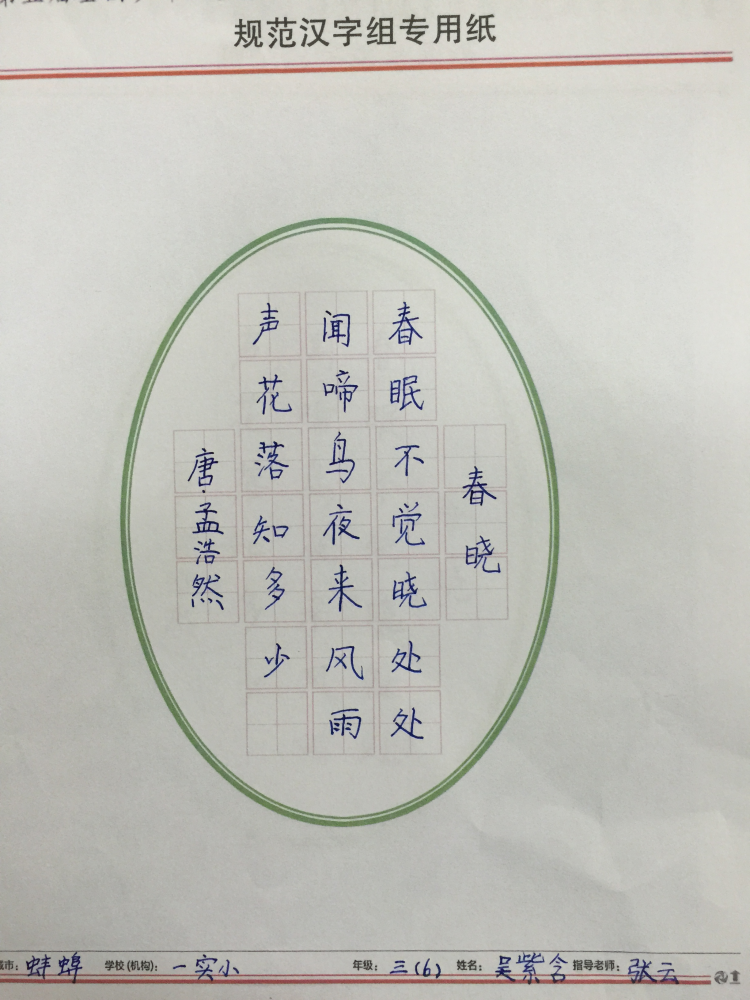 规范汉字组专用纸
春晓
春眠不觉晓处处
闻啼鸟夜来风雨
声花落知多少
唐·孟浩然
城市：蚌埠 学校（机构）：一实小 年级：三（6） 姓名：吴紫含 指导老师：张云